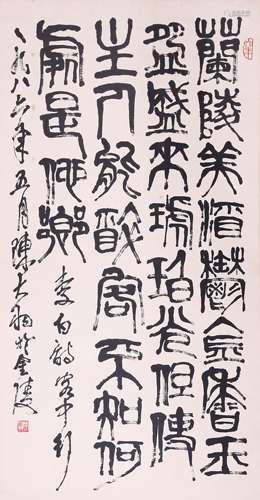 蘭陵美酒鬱金香玉
盌盛來琥珀光但使
主人能醉客不知何
處是他鄉
李白詩客中行
一九八六年五月陳大羽於金陵